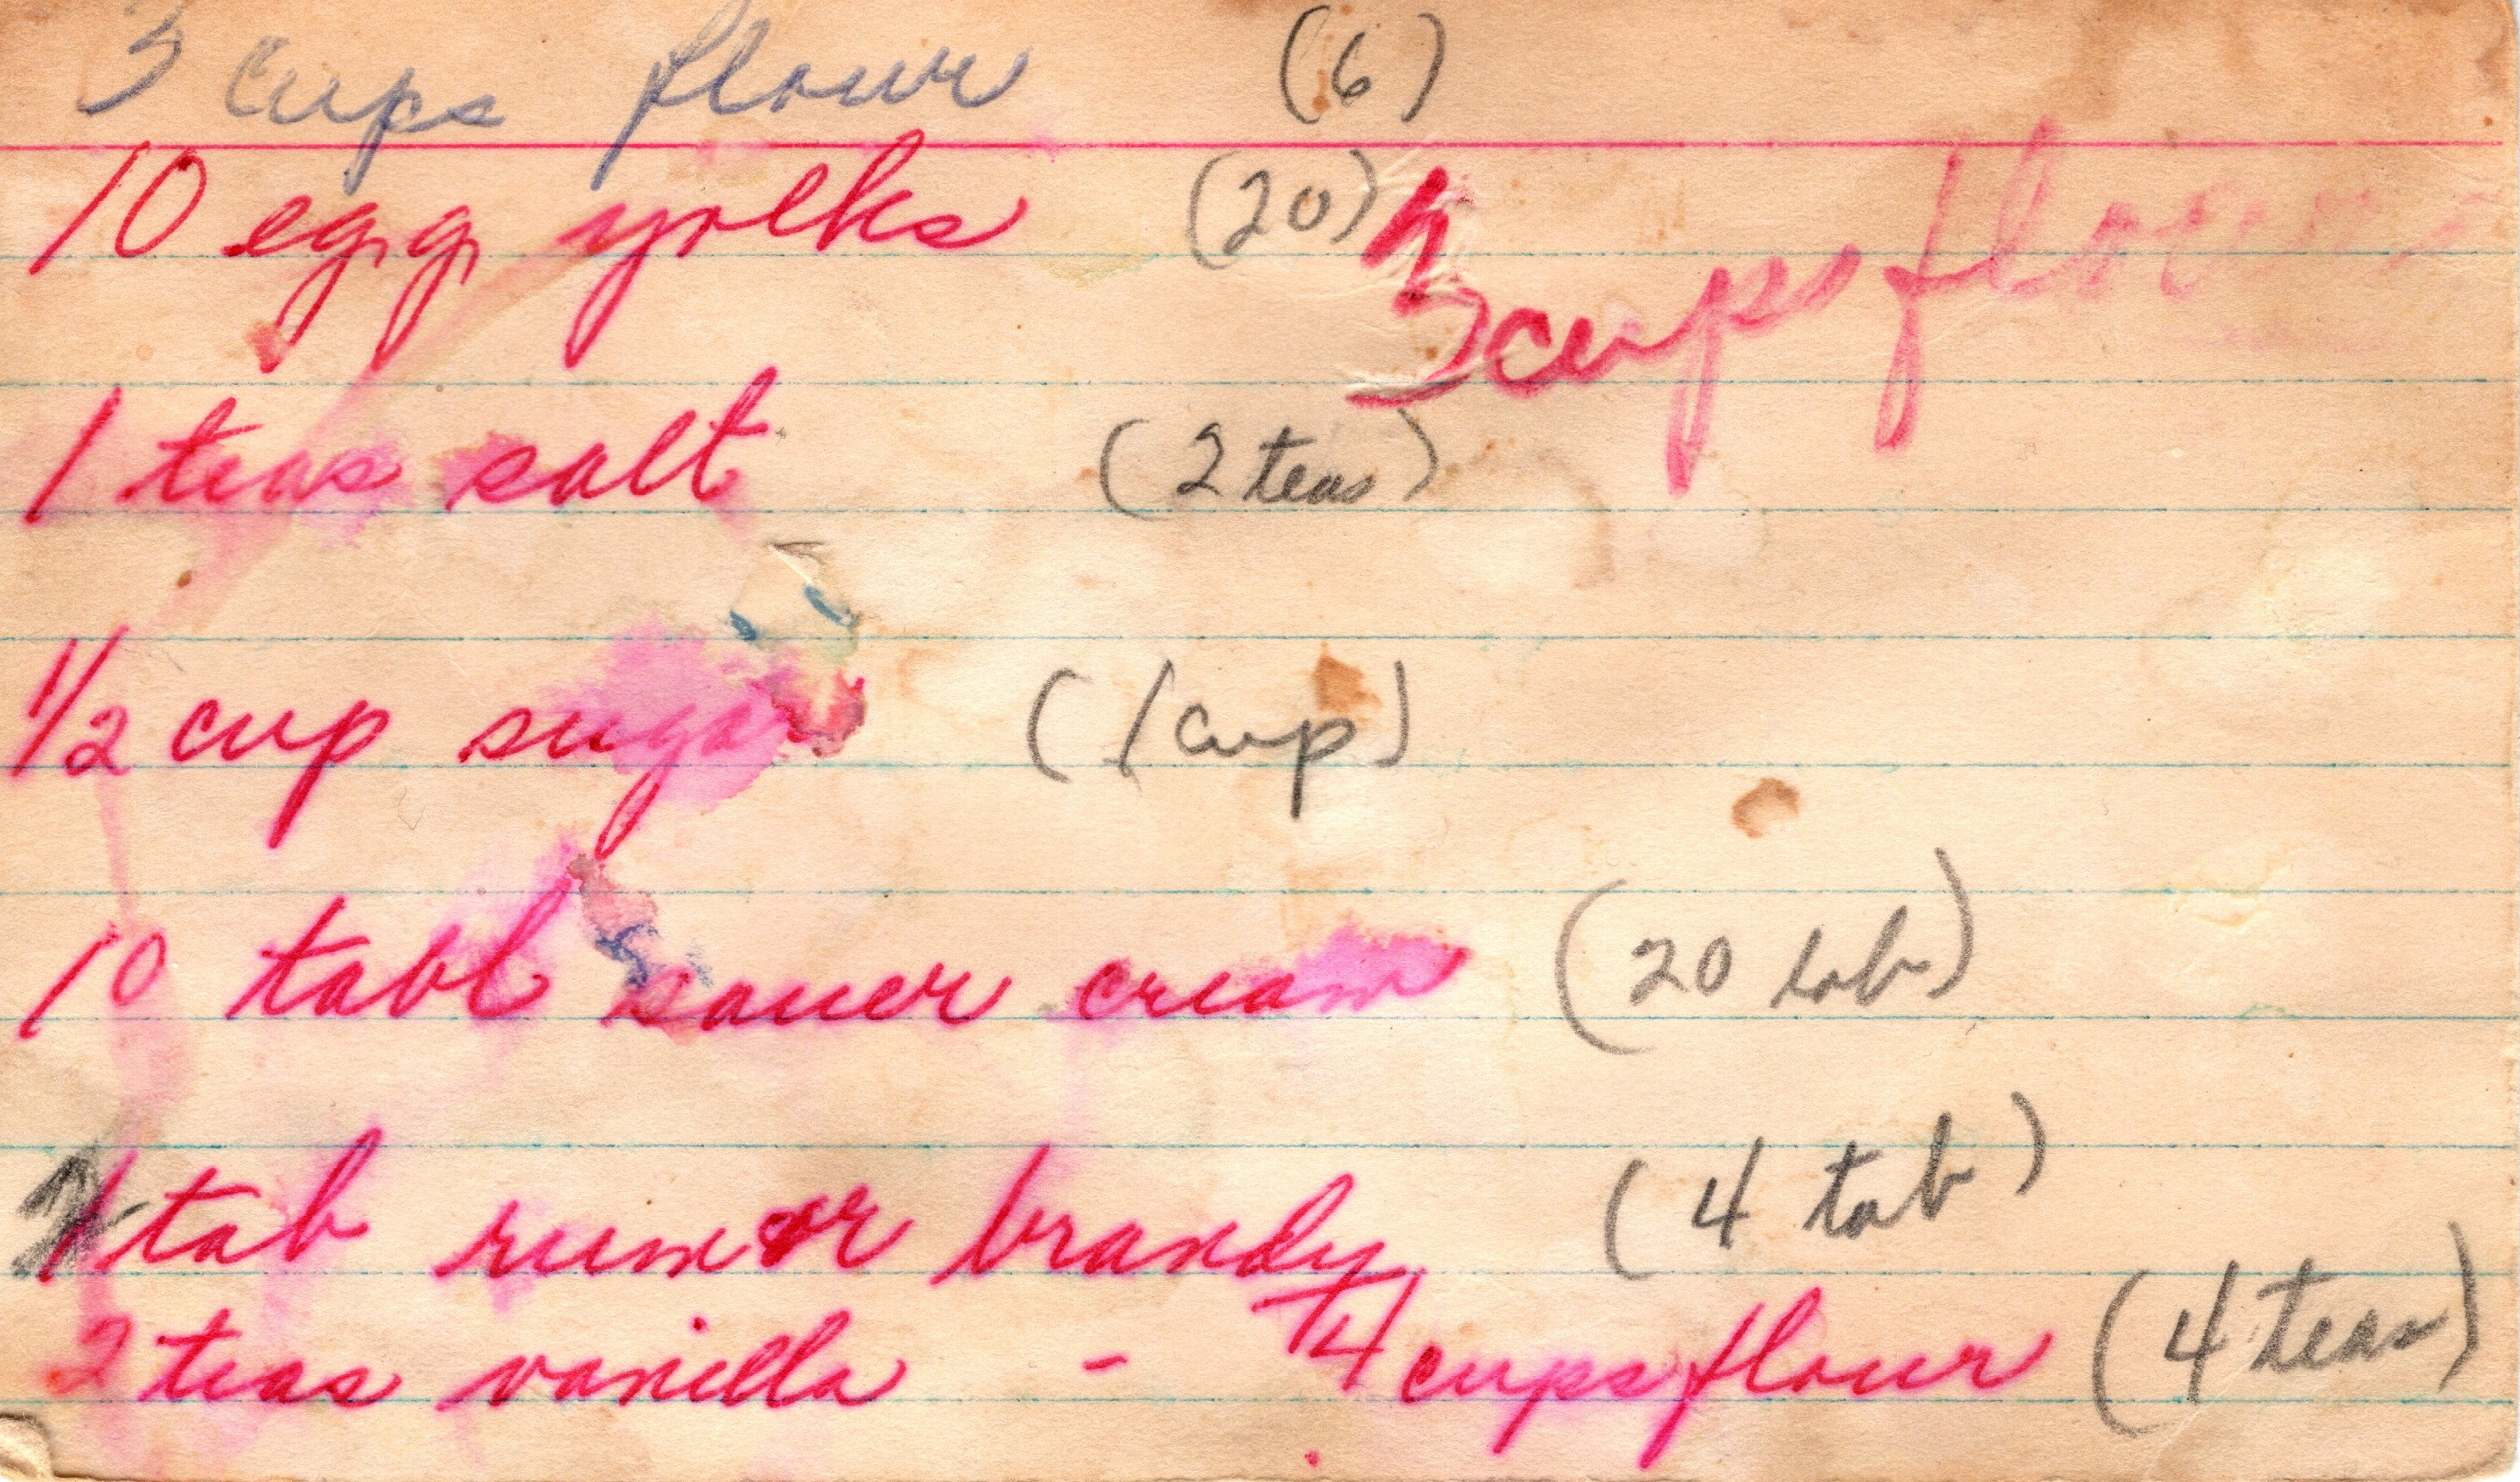 3 cups flour (6)
10 egg yolks (20) 3 cups flour
1 teas salt (2 teas)
1/2 cup sugar (1 cup)
10 tabl sauer cream (20 tab)
tab rum or brandy (4 tab)
2 teas vanilla - 4 cups flour (4 teas)